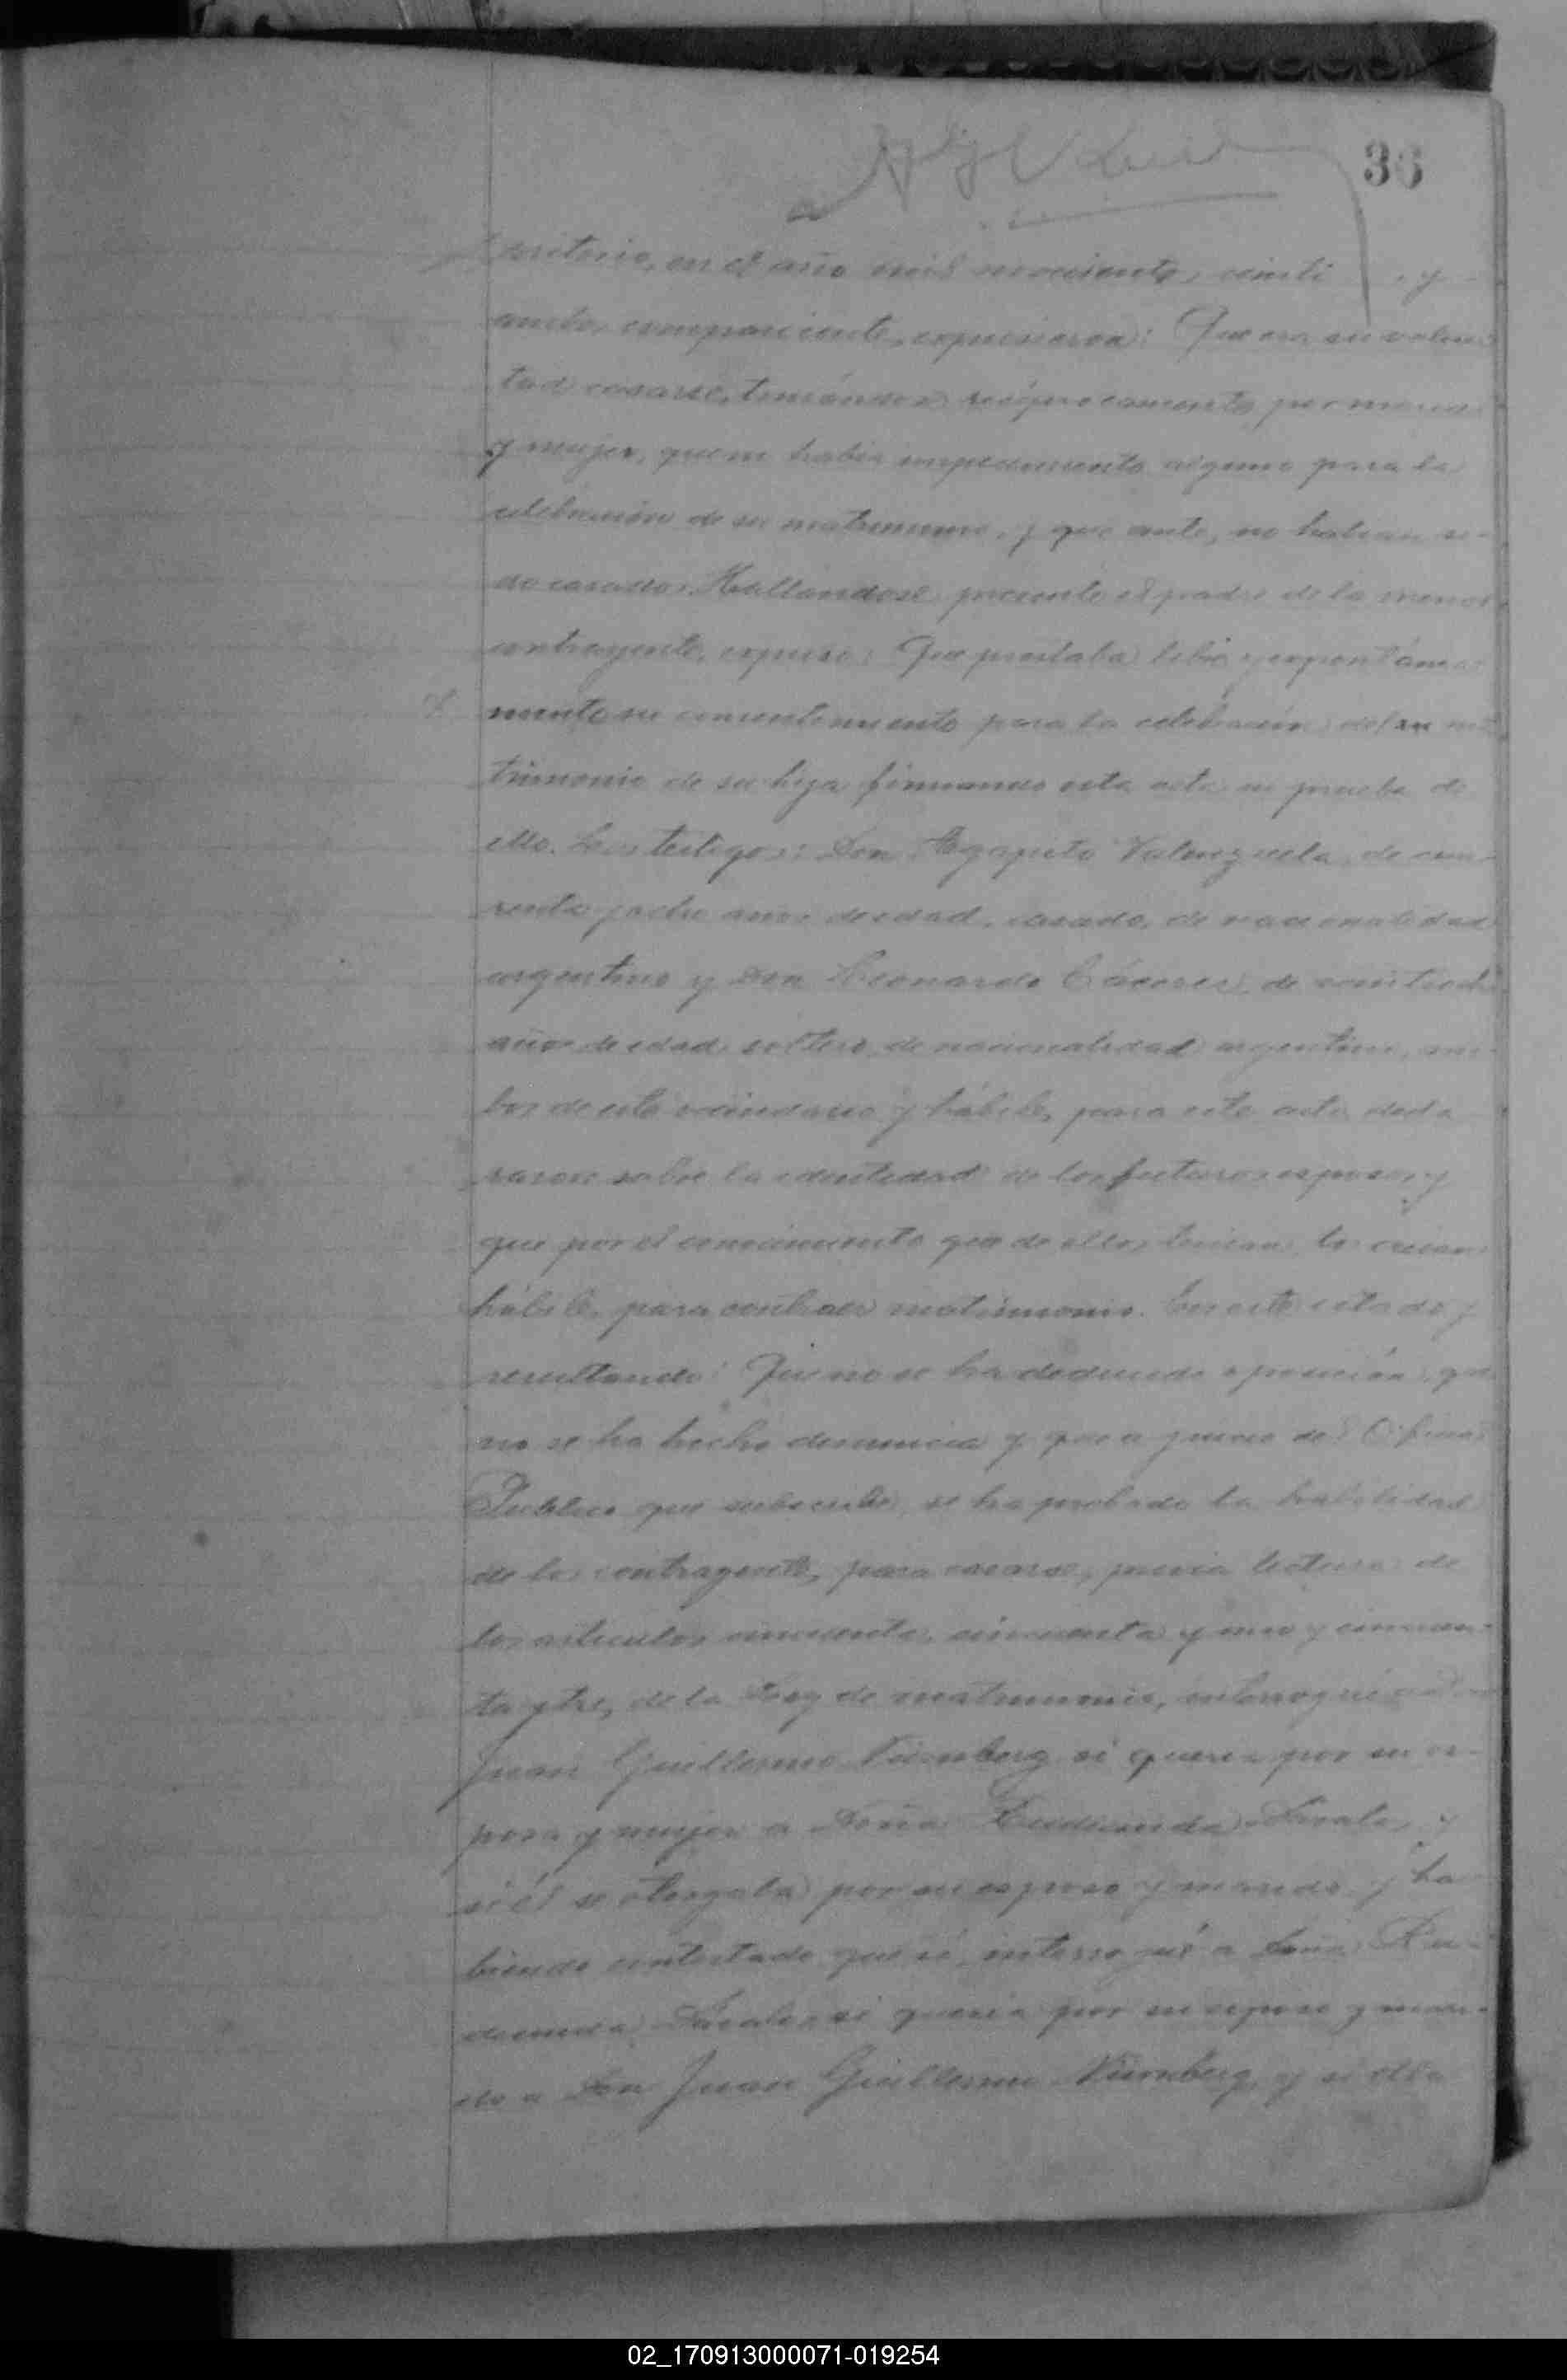 36
territorio, en el año mil novecientos veinti y
ambos comparecientes expusieron: Que era su volun-
tad casarse, teniéndose recíprocamente por marido
y mujer, que no había impedimento alguno para la
celebración de su matrimonio, y que antes no habían si-
do casados. Hallandose presente el padre de la menor
contrayente, expuso: Que prestaba libre y expontánea
mente su consentimiento para la celebración del ma
trimonio de su hija firmando esta acta en prueba de
ello. Los testigos: Don Agapito Valenzuela, de cua-
renta y ocho años de edad, casado, de nacionalidad
argentino y Don Leonardo Cáceres, de
años de edad, soltero, de nacionalidad argentino, am-
bos de este vecindario y hábiles para este acto, decla
raron sobre la identidad de los futuros esposos y
que por el conocimiento que de ellos tenían los creían
hábiles para contraer matrimonio. En este estado y
resultando: Que no se ha deducido oposición, que
no se ha hecho denuncia y que a juicio del Oficial
Publico que subscribe, se ha probado la habilidad
de los contrayentes para casarse, previa lectura de
los artículos cincuenta, cincuenta y uno y cincuen-
ta y tres de la Ley de matrimonio, interrogué a Don
Juan Guillermo Nürnberg si quería por su es-
posa y mujer a Doña Rudecinda y
si él se otorgaba por su esposo y marido, y ha
biendo contestado que sí, interrogué a Doña Ru-
decinda si quería por su esposo y mari-
do a Don Juan Guillermo Nürnberg, y si ella
02_170913000071-019254